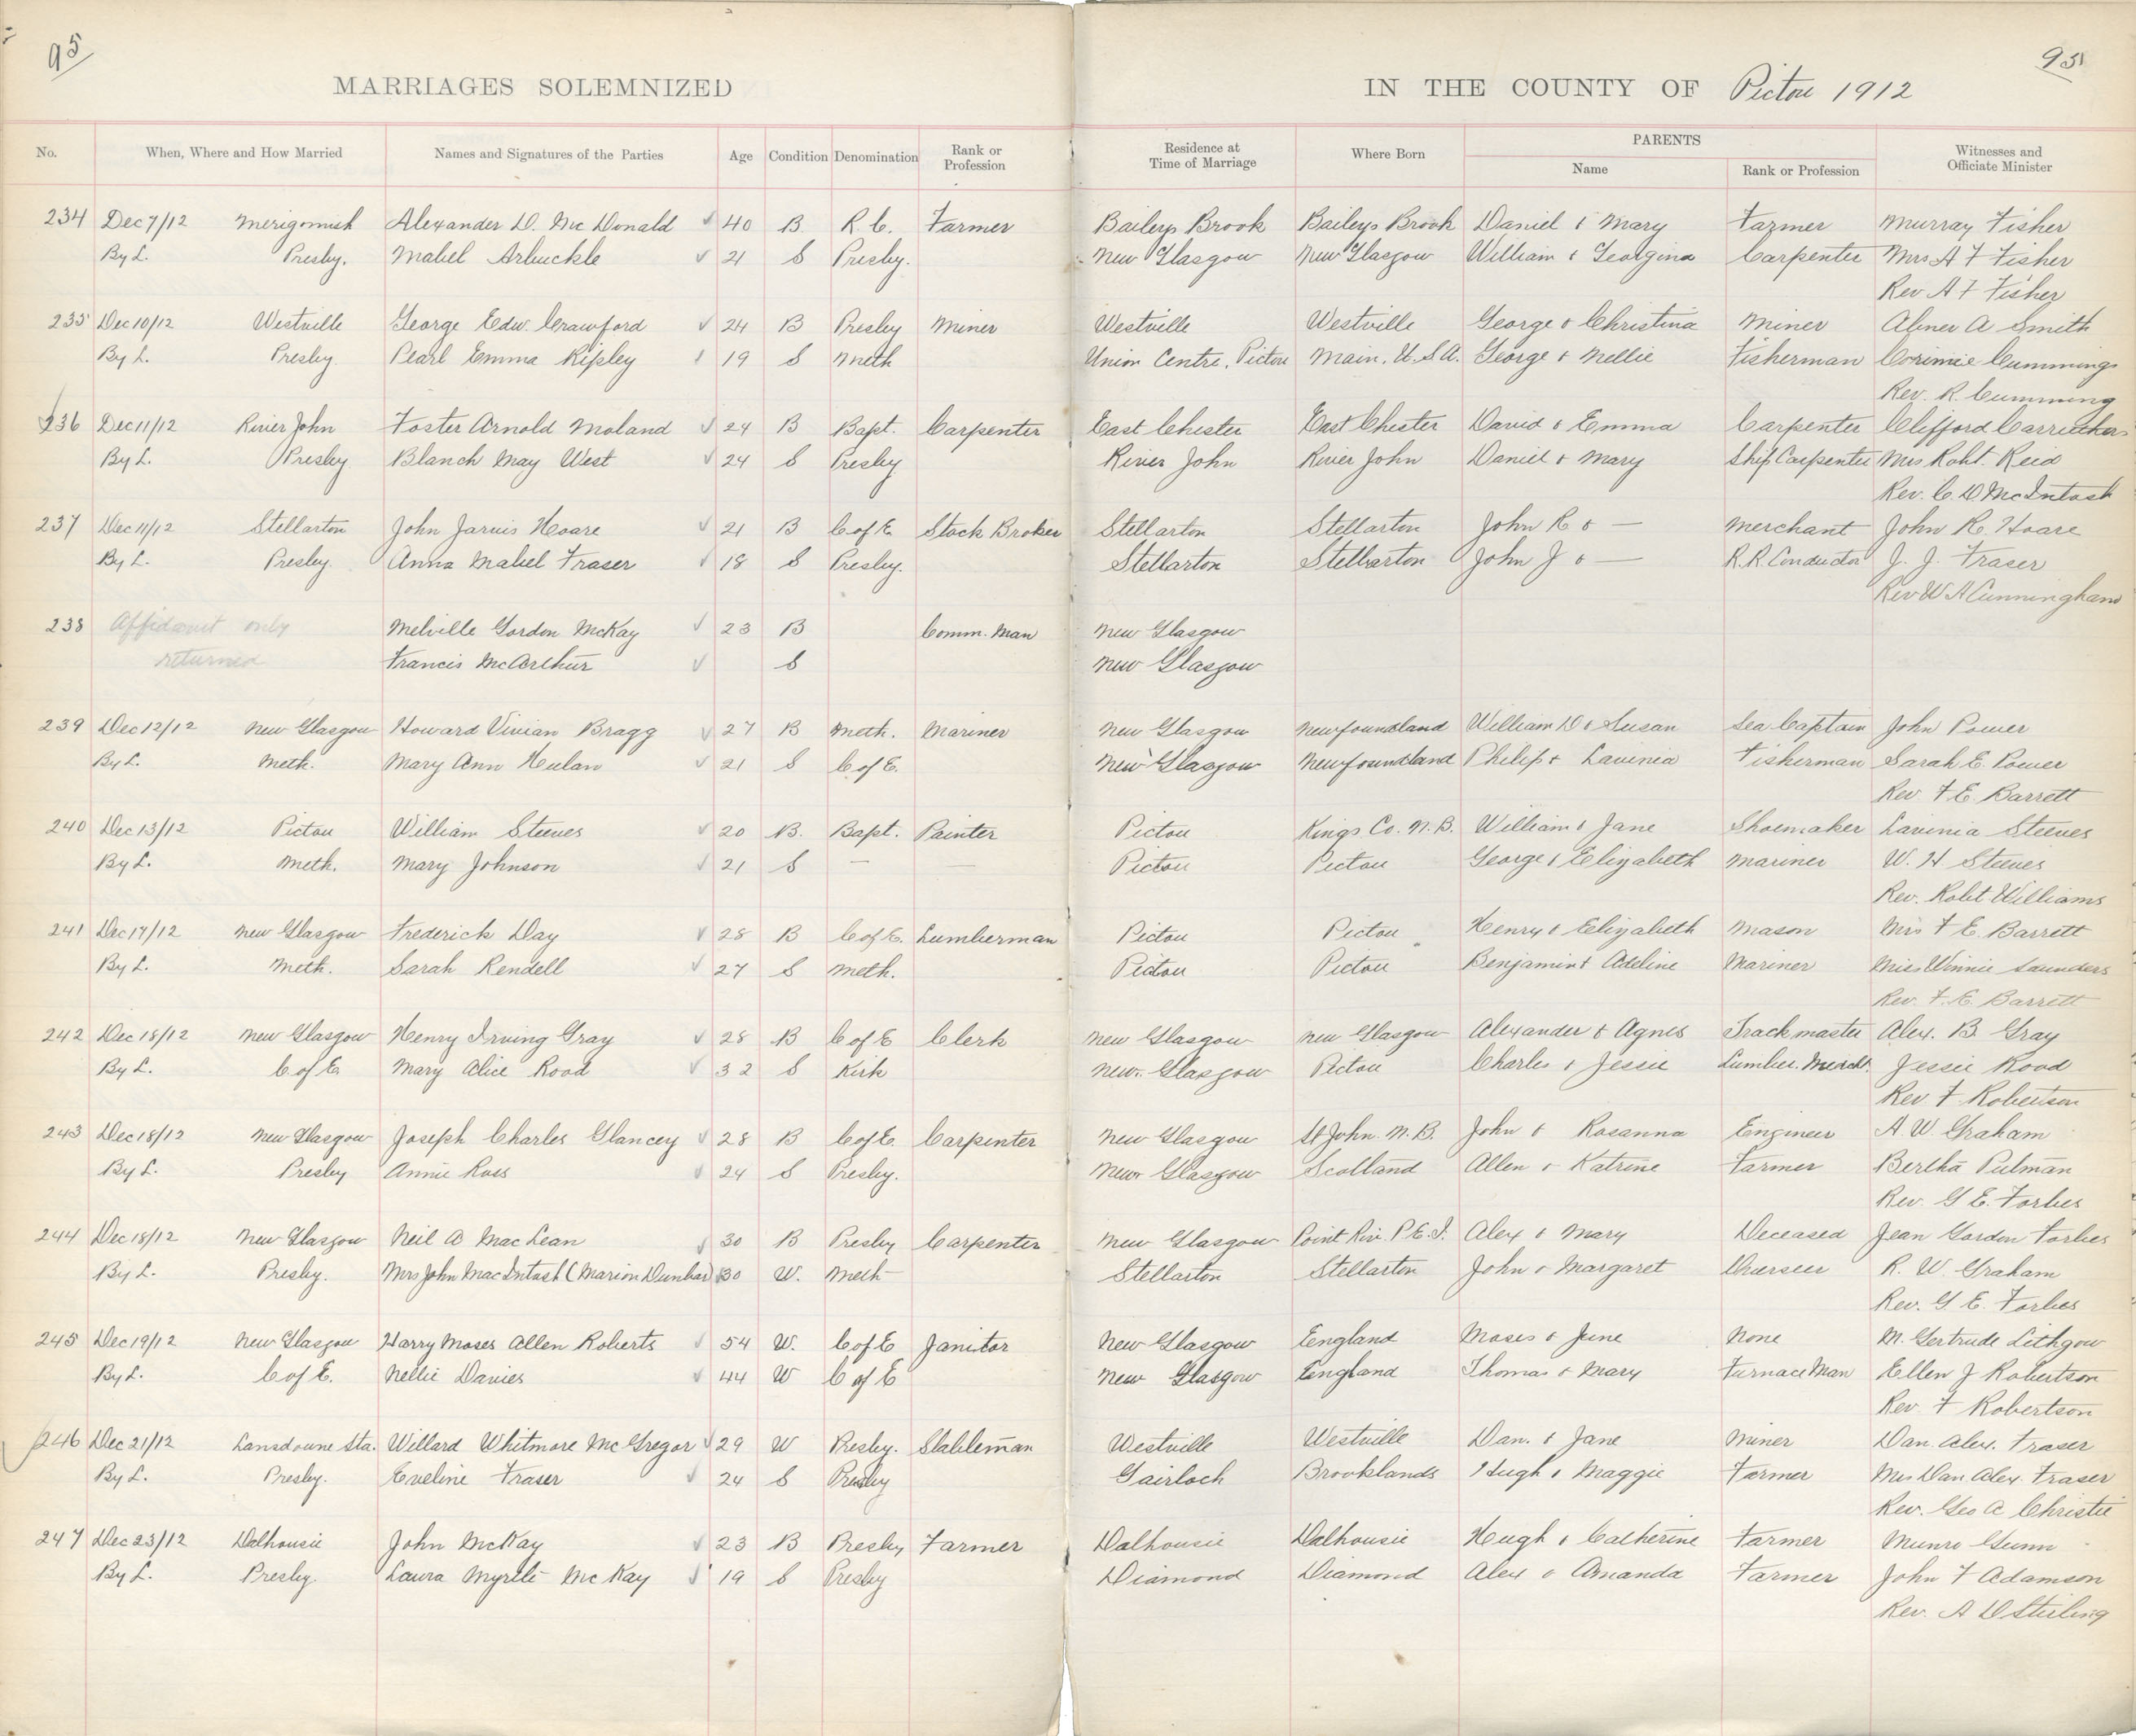 95
95
MARRIAGES SOLEMNIZED IN THE COUNTY OF Pictou 1912
No. When, Where and How Married Names and Signatures of the Parties Age Condition Denomination Rank or Profession Residence at Time of Marriage Where Born PARENTS Name Rank or Profession Witnesses and Officiate Minister
234 Dec 7/12 Merigomish Alexander D. McDonald 40 B R.C. Farmer Baileys Brook Baileys Brook Daniel & Mary Farmer Murray Fisher
By L. Presby. Mabel Arbuckle 21 S Presby. New Glasgow New Glasgow William & Georgina Carpenter Mrs A F Fisher
Rev A F Fisher
235 Dec 10/12 Westville George Edw. Crawford 24 B Presby Miner Westville Westville George & Christina Miner Abner A Smith
By L. Presby. Pearl Emma Ripley 19 S Meth Union Centre, Pictou Main. U.S.A. George & Nellie Fisherman Corimie Cummings
Rev. R. Cumming
236 Dec 11/12 River John Foster Arnold Moland 24 B Bapt. Carpenter East Chester East Chester David & Emma Carpenter Clifford Carruthers
By L. Presby Blanch May West 24 S Presby River John River John Daniel & Mary Ship Carpenter Mrs Robt. Reid
Rev. C. D McIntosh
237 Dec 11/12 Stellarton John Jarvis Hoare 21 B C of E Stock Broker Stellarton Stellarton John R & — Merchant John R. Hoare
By L. Presby. Anna Mabel Fraser 18 S Presby. Stellarton Stellarton John J & — R.R. Conductor J. J. Fraser
Rev W A Cunningham
238 Affidavit only Melville Gordon McKay 23 B Comm. Man New Glasgow
returned Francis McArthur S New Glasgow
239 Dec 12/12 New Glasgow Howard Vivian Bragg 27 B Meth. Mariner New Glasgow Newfoundland William D & Susan Sea Captain John Power
By L. Meth. Mary Ann Hulan 21 S C of E. New Glasgow Newfoundland Philip & Lavinia Fisherman Sarah E. Power
Rev. F E. Barrett
240 Dec 13/12 Pictou William Steeves 20 B. Bapt. Painter Pictou Kings Co. N.B. William & Jane Shoemaker Lavinia Steeves
By L. Meth. Mary Johnson 21 S — — Pictou Pictou George & Elizabeth Mariner W. H Steeves
Rev. Robt Williams
241 Dec 17/12 New Glasgow Frederick Day 28 B C of E. Lumberman Pictou Pictou Henry & Elizabeth Mason Mrs F E. Barrett
By L. Meth. Sarah Rendell 27 S Meth. Pictou Pictou Benjamin & Adeline Mariner Miss Winnie Saunders
Rev. F. E. Barrett
242 Dec 18/12 New Glasgow Henry Irving Gray 28 B C of E Clerk New Glasgow New Glasgow Alexander & Agnes Trackmaster Alex. B Gray
By L. C of E. Mary Alice Rood 32 S Kirk New Glasgow Pictou Charles & Jessie Lumber Mercht. Jessie Rood
Rev F. Robertson
243 Dec 18/12 New Glasgow Joseph Charles Glancey 28 B C of E. Carpenter New Glasgow St John. N.B. John & Rosanna Engineer A. W. Graham
By L. Presby Annie Ross 24 S Presby. New Glasgow Scotland Allen & Katrine Farmer Bertha Pulman
Rev. G E. Forbes
244 Dec 18/12 New Glasgow Neil A MacLean 30 B Presby Carpenter New Glasgow Point Riv. P.E.I. Alex & Mary Deceased Jean Gordon Forbes
By L. Presby. Mrs John MacIntosh (Marion Dunbar) 30 W. Meth Stellarton Stellarton John & Margaret Overseer R. W. Graham
Rev. G E. Forbes
245 Dec 19/12 New Glasgow Harry Moses Allen Roberts 54 W. C of E Janitor New Glasgow England Moses & June None M. Gertrude Lithgow
By L. C of E. Nellie Davies 44 W C of E New Glasgow England Thomas & Mary Furnace Man Ellen J Robertson
Rev. F Robertson
246 Dec 21/12 Lansdowne Sta. Willard Whitmore McGregor 29 W Presby. Stableman Westville Westville Dan. & Jane Miner Dan. Alex. Fraser
By L. Presby. Eveline Fraser 24 S Presby Gairloch Brooklands Hugh & Maggie Farmer Mrs Dan Alex. Fraser
Rev. Geo A Christie
247 Dec 23/12 Dalhousie John McKay 23 B Presby Farmer Dalhousie Dalhousie Hugh & Catherine Farmer Munro Gunn
By L. Presby. Laura Myrtle McKay 19 S Presby Diamond Diamond Alex & Amanda Farmer John F Adamson
Rev. A D Stirling